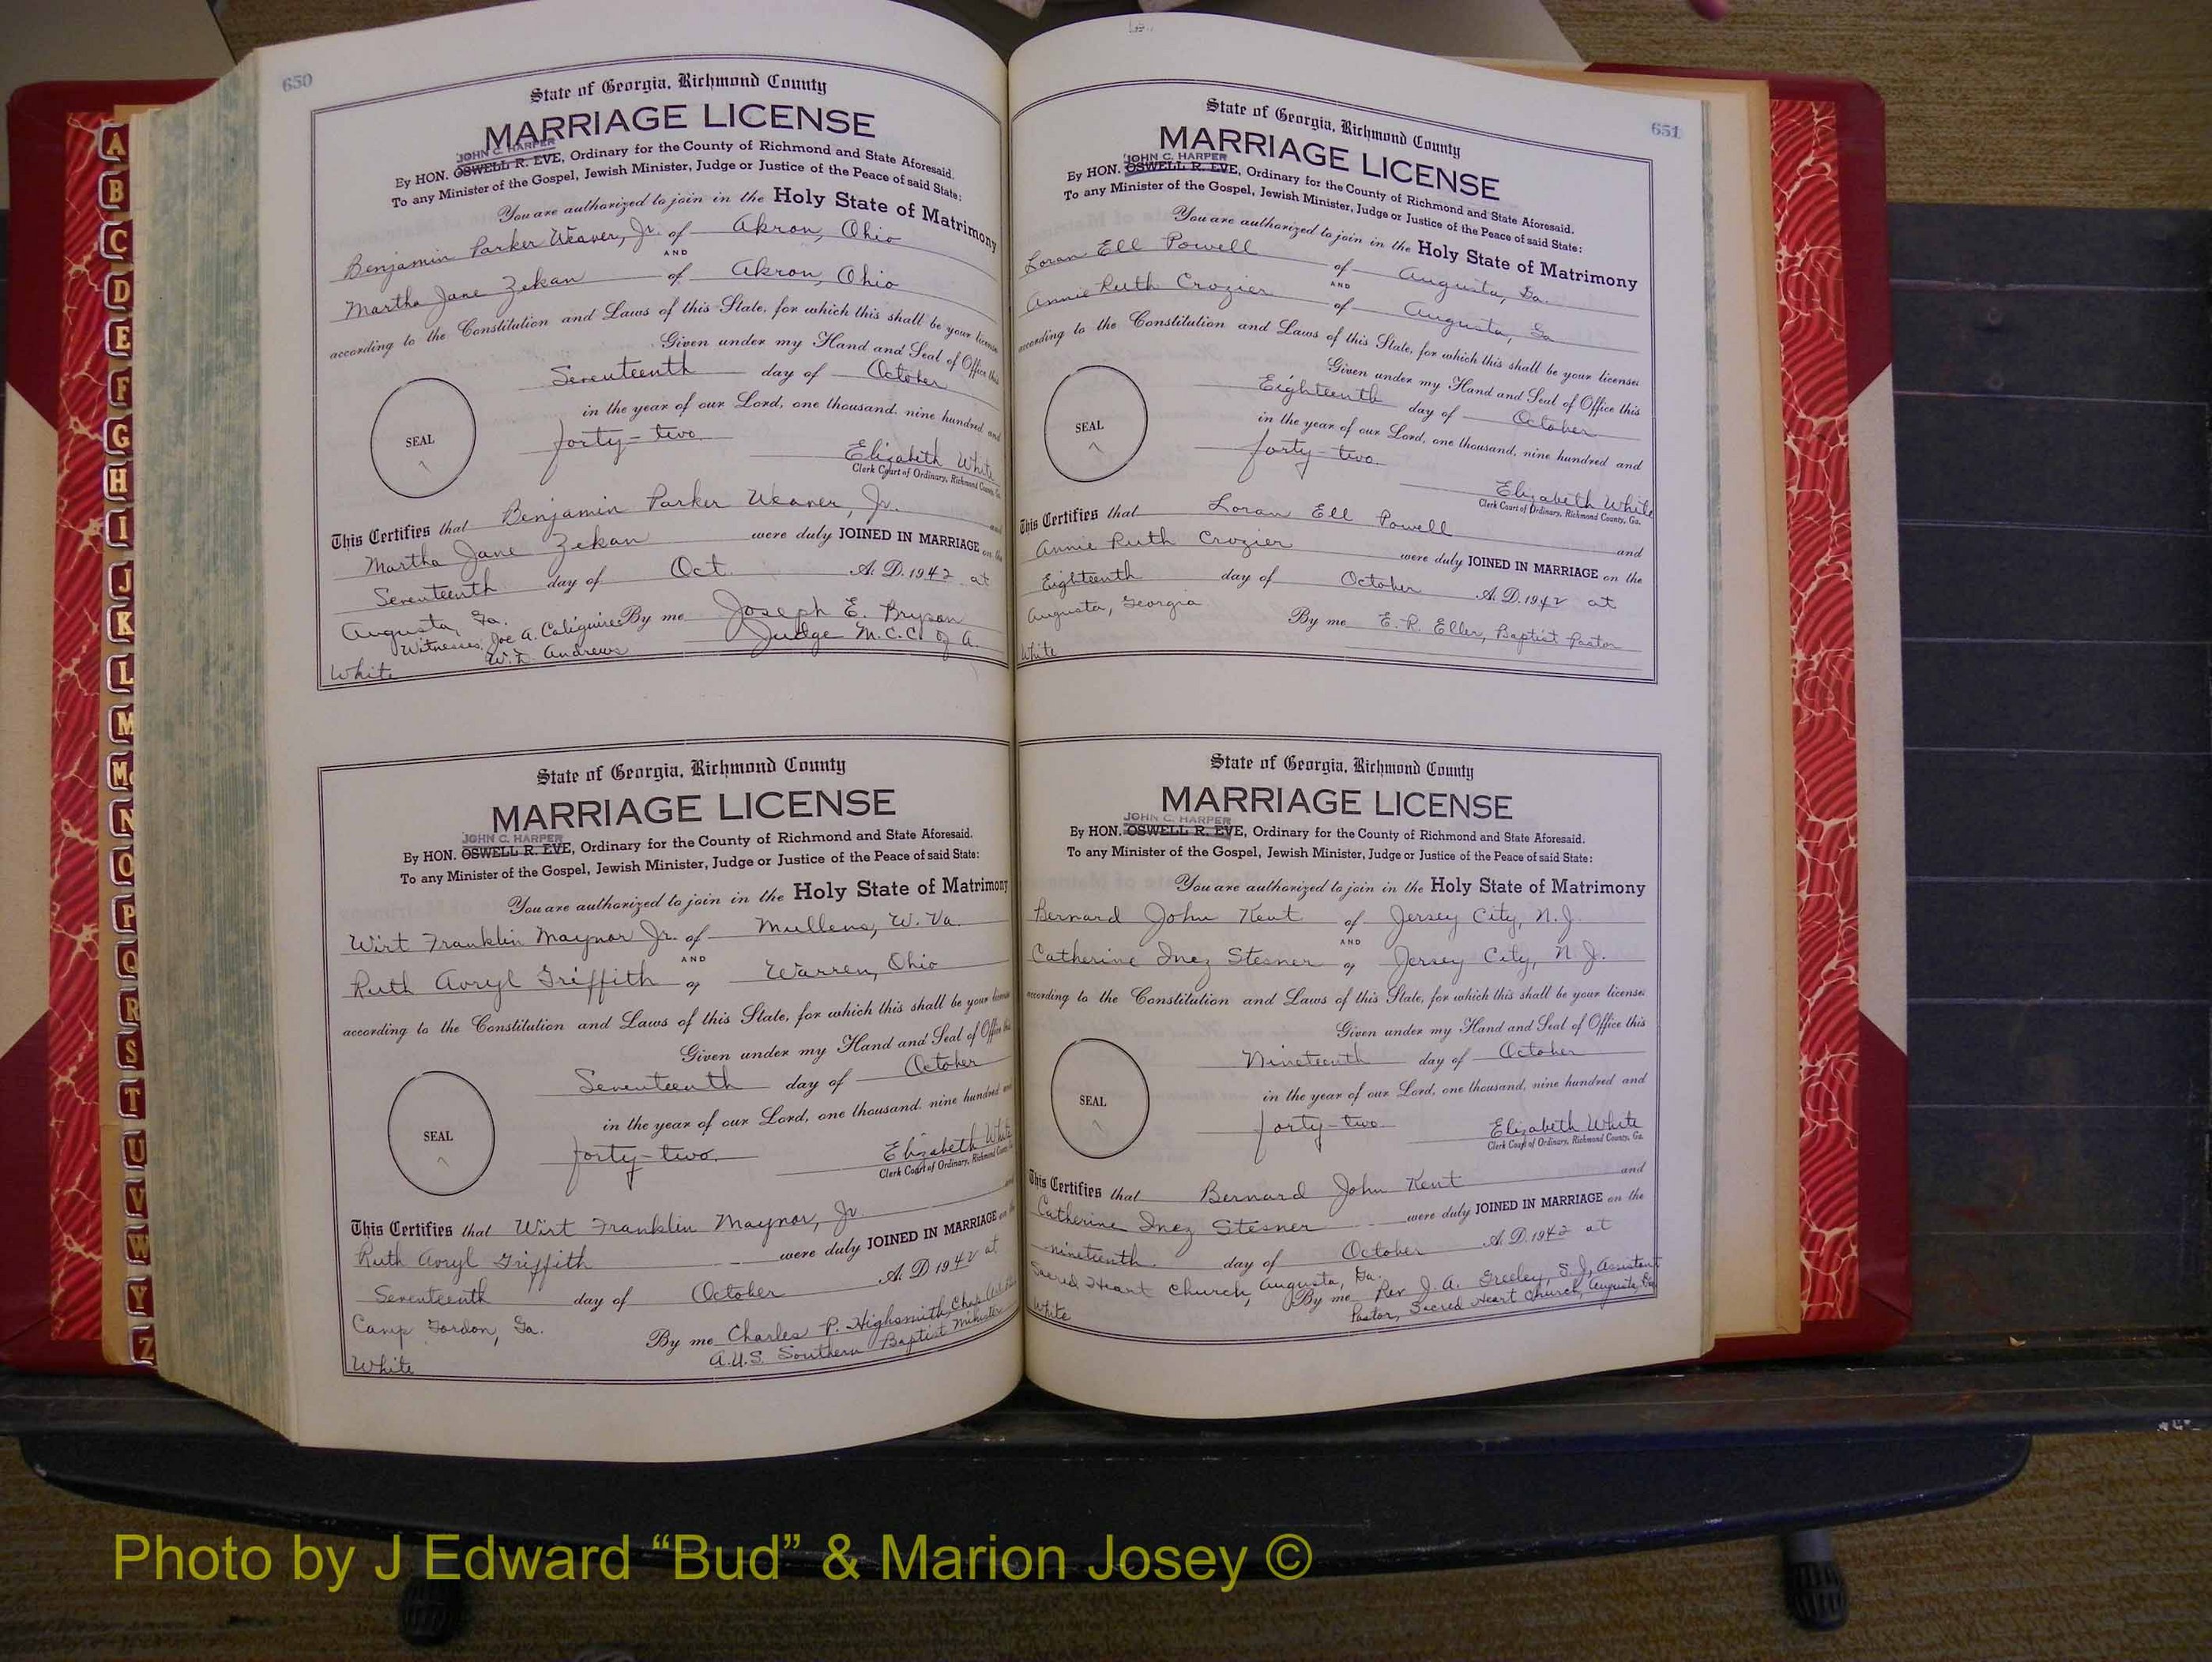 650
State of Georgia, Richmond County
MARRIAGE LICENSE
JOHN C. HARPER
By HON. OSWELL R. EVE, Ordinary for the County of Richmond and State Aforesaid.
To any Minister of the Gospel, Jewish Minister, Judge or Justice of the Peace of said State:
You are authorized to join in the Holy State of Matrimony
Benjamin Parker Weaver, Jr. of Akron, Ohio
AND
Martha Jane Zekan of Akron, Ohio
according to the Constitution and Laws of this State, for which this shall be your license
Given under my Hand and Seal of Office this
Seventeenth day of October
in the year of our Lord, one thousand, nine hundred and
forty-two
SEAL
Elizabeth White
Clerk Court of Ordinary, Richmond County, Ga.
This Certifies that Benjamin Parker Weaver, Jr. and
Martha Jane Zekan were duly JOINED IN MARRIAGE on the
Seventeenth day of Oct. A. D. 1942 at
Augusta, Ga. By me Joseph E. Bryson
Witnesses: Joe A. Caliguire Judge M.C.C. of A.
W. T. Andrews
White
State of Georgia, Richmond County
MARRIAGE LICENSE
JOHN C. HARPER
By HON. OSWELL R. EVE, Ordinary for the County of Richmond and State Aforesaid.
To any Minister of the Gospel, Jewish Minister, Judge or Justice of the Peace of said State:
You are authorized to join in the Holy State of Matrimony
Wirt Franklin Maynor Jr. of Mullens, W. Va.
AND
Ruth Avryl Griffith of Warren, Ohio
according to the Constitution and Laws of this State, for which this shall be your license
Given under my Hand and Seal of Office this
Seventeenth day of October
in the year of our Lord, one thousand, nine hundred and
forty-two
SEAL
Elizabeth White
Clerk Court of Ordinary, Richmond County, Ga.
This Certifies that Wirt Franklin Maynor, Jr. and
Ruth Avryl Griffith were duly JOINED IN MARRIAGE on the
Seventeenth day of October A. D. 1942 at
Camp Gordon, Ga. By me Charles P. Highsmith, Chap.
A.U.S. Southern Baptist Minister
White
651
State of Georgia, Richmond County
MARRIAGE LICENSE
JOHN C. HARPER
By HON. OSWELL R. EVE, Ordinary for the County of Richmond and State Aforesaid.
To any Minister of the Gospel, Jewish Minister, Judge or Justice of the Peace of said State:
You are authorized to join in the Holy State of Matrimony
Loran Ell Powell of Augusta, Ga.
AND
Annie Ruth Crozier of Augusta, Ga
according to the Constitution and Laws of this State, for which this shall be your license:
Given under my Hand and Seal of Office this
Eighteenth day of October
in the year of our Lord, one thousand, nine hundred and
forty-two
SEAL
Elizabeth White
Clerk Court of Ordinary, Richmond County, Ga.
This Certifies that Loran Ell Powell and
Annie Ruth Crozier were duly JOINED IN MARRIAGE on the
Eighteenth day of October A. D. 1942 at
Augusta, Georgia By me E. R. Eller, Baptist Pastor
White
State of Georgia, Richmond County
MARRIAGE LICENSE
JOHN C. HARPER
By HON. OSWELL R. EVE, Ordinary for the County of Richmond and State Aforesaid.
To any Minister of the Gospel, Jewish Minister, Judge or Justice of the Peace of said State:
You are authorized to join in the Holy State of Matrimony
Bernard John Kent of Jersey City, N.J.
AND
Catherine Inez Stesner of Jersey City, N.J.
according to the Constitution and Laws of this State, for which this shall be your license:
Given under my Hand and Seal of Office this
Nineteenth day of October
in the year of our Lord, one thousand, nine hundred and
forty-two
SEAL
Elizabeth White
Clerk Court of Ordinary, Richmond County, Ga.
This Certifies that Bernard John Kent and
Catherine Inez Stesner were duly JOINED IN MARRIAGE on the
nineteenth day of October A. D. 1942 at
Sacred Heart Church, Augusta, Ga. By me Rev J. A. Greeley, S.J, Assistant
Pastor, Sacred Heart Church, Augusta, Ga.
White
A
B
C
D
E
F
G
H
I
J
K
L
M
Mc
N
O
P
Q
R
S
T
U
V
W
Y
Z
Photo by J Edward “Bud” & Marion Josey ©